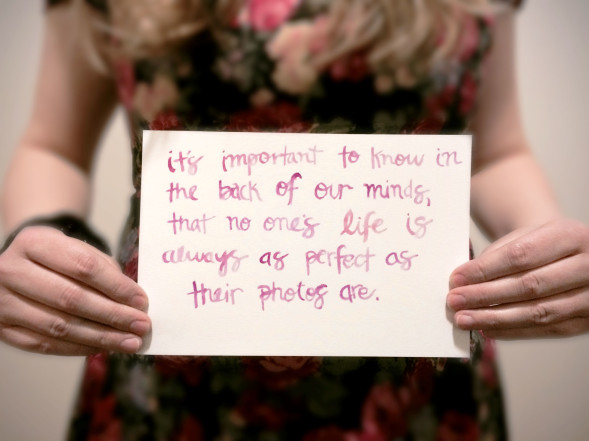 it's important to know in
the back of our minds,
that no one's life is
always as perfect as
their photos are.